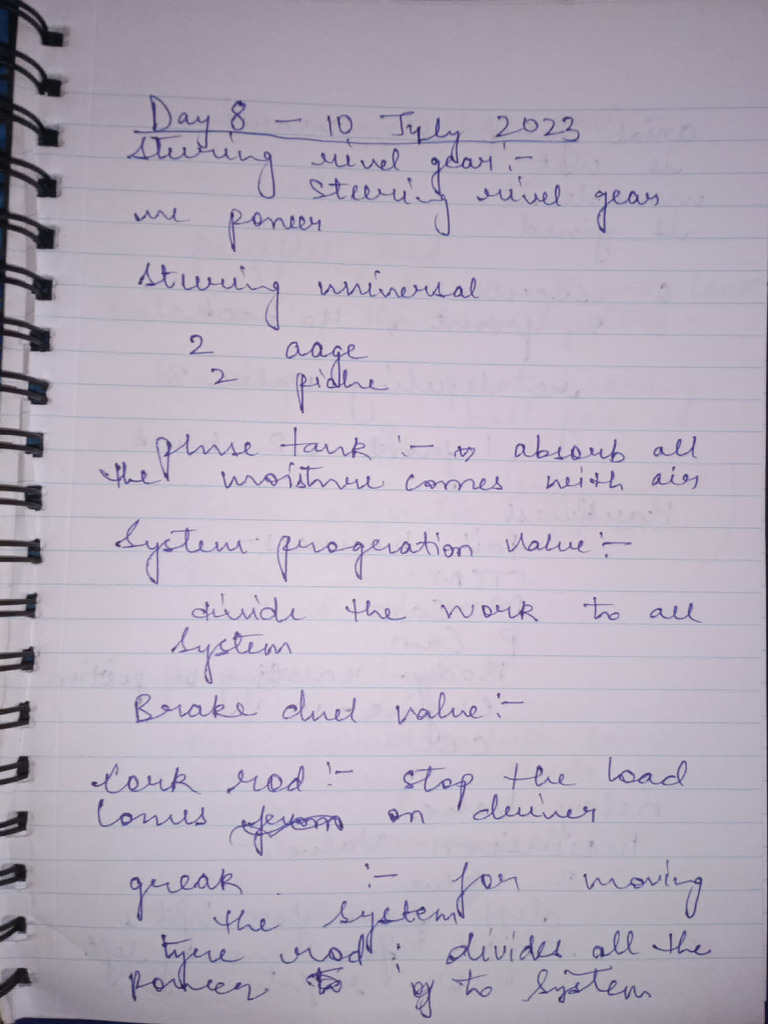 Day 8 - 10 July 2023
Steering rivel gear :-
Steering rivel gear
power
Steering universal
2 aage
2 piche
phuse tank :- absorb all
the moisture comes with air
System progeration value :-
divide the work to all
System
Brake duel value :-
rod :- stop the load
comes on driver
greak :- for moving
the system
tyre rod : divides all the
power to system